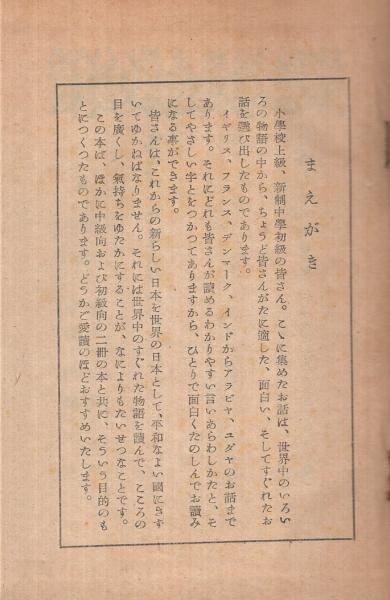 まえがき
小學校上級、新制中學初級の皆さん。こゝに集めたお話は、世界中のいろい
ろの物語の中から、ちょうど皆さんがたに適した、面白い、そしてすぐれたお
話を選び出したものであります。
イギリス、フランス、デンマーク、インドからアラビヤ、ユダヤのお話まで
あります。それにどれも皆さんが讀めるわかりやすい言いあらわしかたと、そ
してやさしい字とをつかつてありますから、ひとりで面白くたのしんでお讀み
になる事ができます。
皆さんは、これからの新らしい日本を世界の日本として、平和なよい國にきず
いてゆかねばなりません。それには世界中のすぐれた物語を讀んで、こころの
目を廣くし、氣持ちをゆたかにすることが、なによりもたいせつなことです。
この本は、ほかに中級向および初級向の二冊の本と共に、そういう目的のも
とにつくつたものであります。どうかご愛讀のほどおすすめいたします。